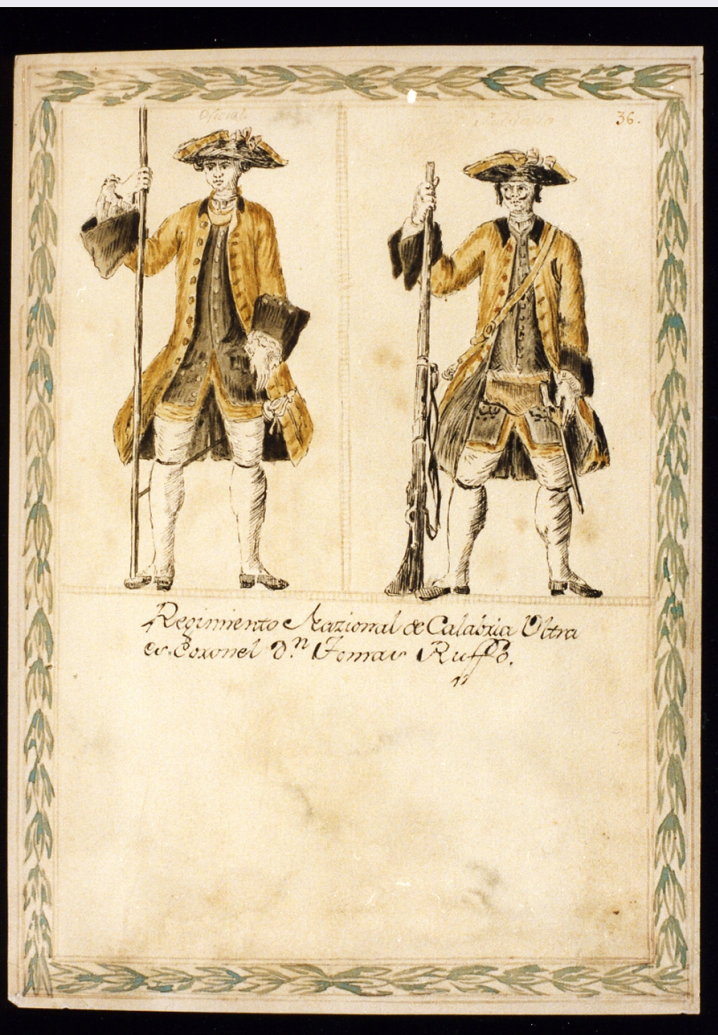 Oficial.
36.
Regimiento Nazional de Calabria Ultra
es Coronel D.n Tomas Ruffo.